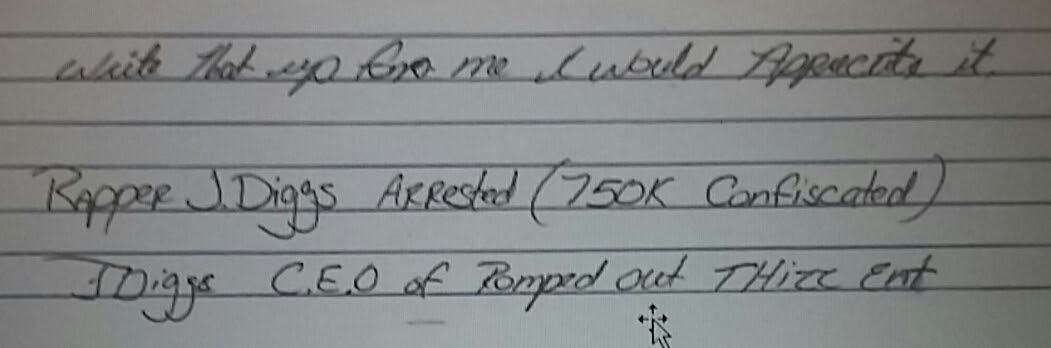 write that up for me I would Apprecite it.
Rapper J.Diggs Arrested (750K Confiscated)
JDiggs C.E.O of Romped out THizz Ent